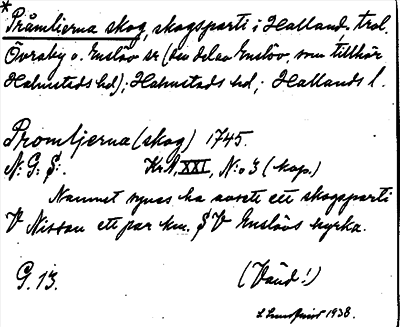 * Pråmlierna skog, skogsparti i Halland, trol.
Övraby o. Enslöv sr (den del av Enslöv, som tillhör
Halmstads hd), Halmstads hd, Hallands l.
Promljerna (skog) 1745.
N: G: S:. Kr. A, XXI, N:o 3 (kop.)
Namnet synes ha avsett ett skogsparti
V Nissan ett par km. S V Enslövs kyrka.
G. 13. (Vänd!)
1938.